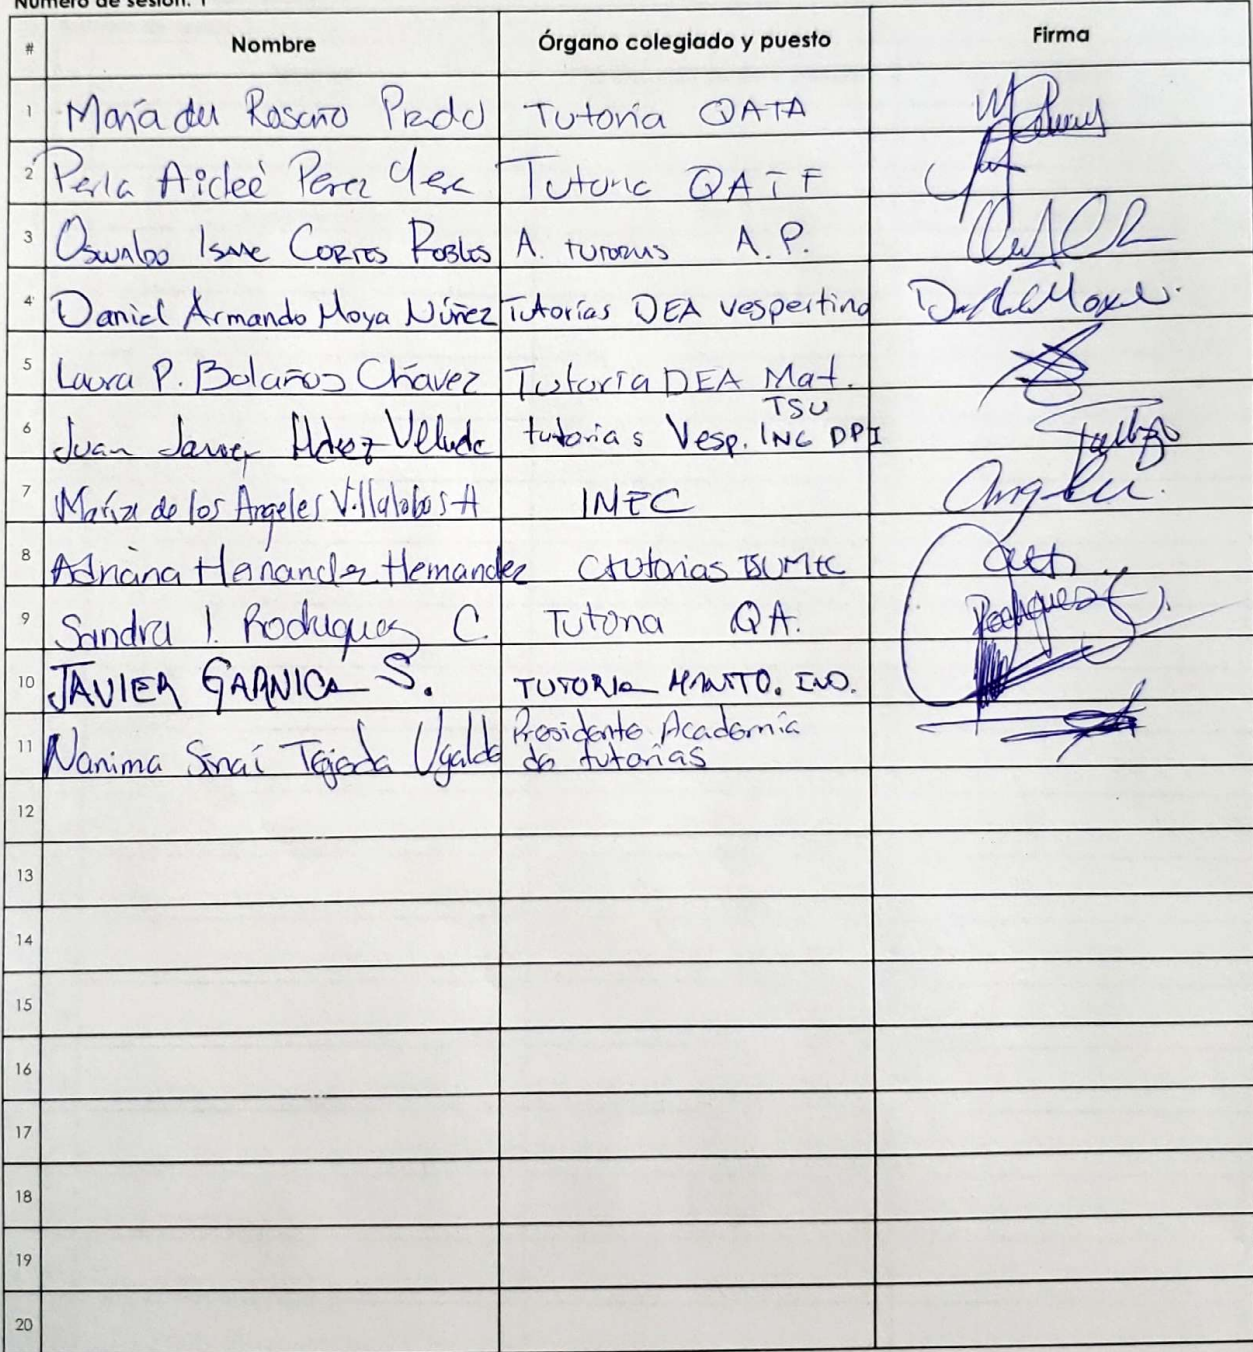 Número de sesión: 1
# Nombre Órgano colegiado y puesto Firma
1 María del Rosario Prado Tutoría QATA
2 Perla Aideé Perez Tutoria QATF
3 Oswaldo Isaac Cortes Robles A. tutorias A.P.
4 Daniel Armando Moya Núñez Tutorías DEA vespertino
5 Laura P. Bolaños Chávez Tutoría DEA Mat.
TSU
6 Juan Javier Hdez tutorias Vesp. ING DPI
7 María de los Angeles Villalobos A INTC
8 Adriana Hernandez Hernandez Ctutorias TSUMtC
9 Sandra I. Rodriguez C. Tutoria QA. Rodriguez
10 JAVIER GARNICA S. TUTORIA MANTTO. IND.
11 Nanima Sinaí Tejeda Ugalde Presidente Academia
de tutorías
12
13
14
15
16
17
18
19
20